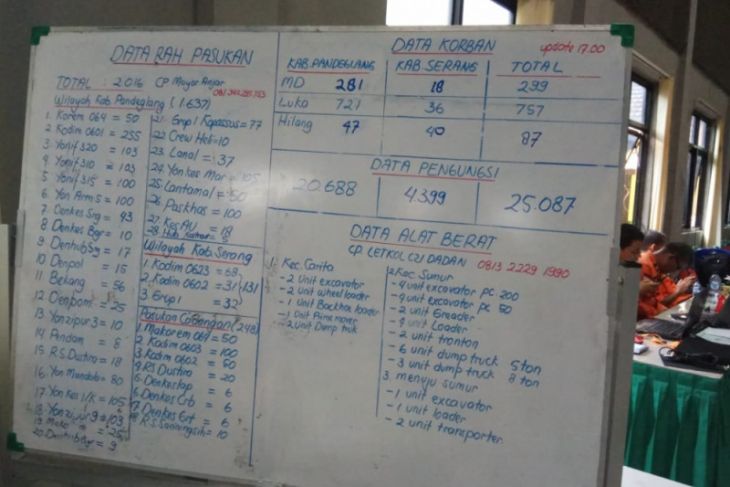 DATA RAH PASUKAN
TOTAL : 2.016 CP Mayor Anjar
Wilayah Kab. Pandeglang (1.637)
1. Korem 064 = 50
2. Kodim 0601 = 255
3. Yonif 320 = 103
4. Yonif 310 = 103
5. Yonif 315 = 100
6. Yon Arm 5 = 100
7. Denkes Srg = 93
8. Denkes Bgr = 10
9. Denhub Srg = 17
10. Denpol = 15
11. Bekang = 56
12. Denbom = 25
13. Yonzipur 3 = 10
14. Pendam = 8
15. R.S. Dustira = 18
16. Yon Mandala = 80
17. Yon Kes 1/K = 105
18. Yonzipur 9 = 103
19. = 25
20. Denhub Bgr = 9
21. Grup 1 Kopassus = 77
22. Crew Heli = 10
23. Lanal = 37
24. Yonkes Mar = 105
25. Lantamal = 50
26. Paskhas = 100
27. Kes AU = 18
28. = 5
Wilayah Kab. Serang
1. Kodim 0623 = 68
2. Kodim 0602 = 31
3. Grup 1 = 32
131
Pasukan Cadangan (248)
1. Makorem 064 = 50
2. Kodim 0603 = 100
3. Kodim 0602 = 50
4. RS Dustira = 20
5. = 6
6. Denkes Crb = 6
7. Denkes Grt = 6
8. R.S. = 10
DATA KORBAN
update 17.00
KAB. PANDEGLANG KAB SERANG TOTAL
MD 281 18 299
Luka 721 36 757
Hilang 47 40 87
DATA PENGUNGSI
20.688 4.399 25.087
DATA ALAT BERAT
CP. LETKOL CZI DADAN 0813 2229 1990
1. Kec. Carita
- 2 unit excavator
- 2 unit wheel loader
- 1 unit Backhoe loader
- 1 unit Prime mover
- 2 unit Dump truk
2. Kec. Sumur
- 4 unit excavator PC 200
- 4 unit excavator PC 50
- 2 unit Greader
- 4 unit Loader
- 2 unit tronton
- 6 unit dump truck 5 ton
- 3 unit dump truck 8 ton
3. menuju sumur
- 1 unit excavator
- 1 unit loader
- 2 unit transporter